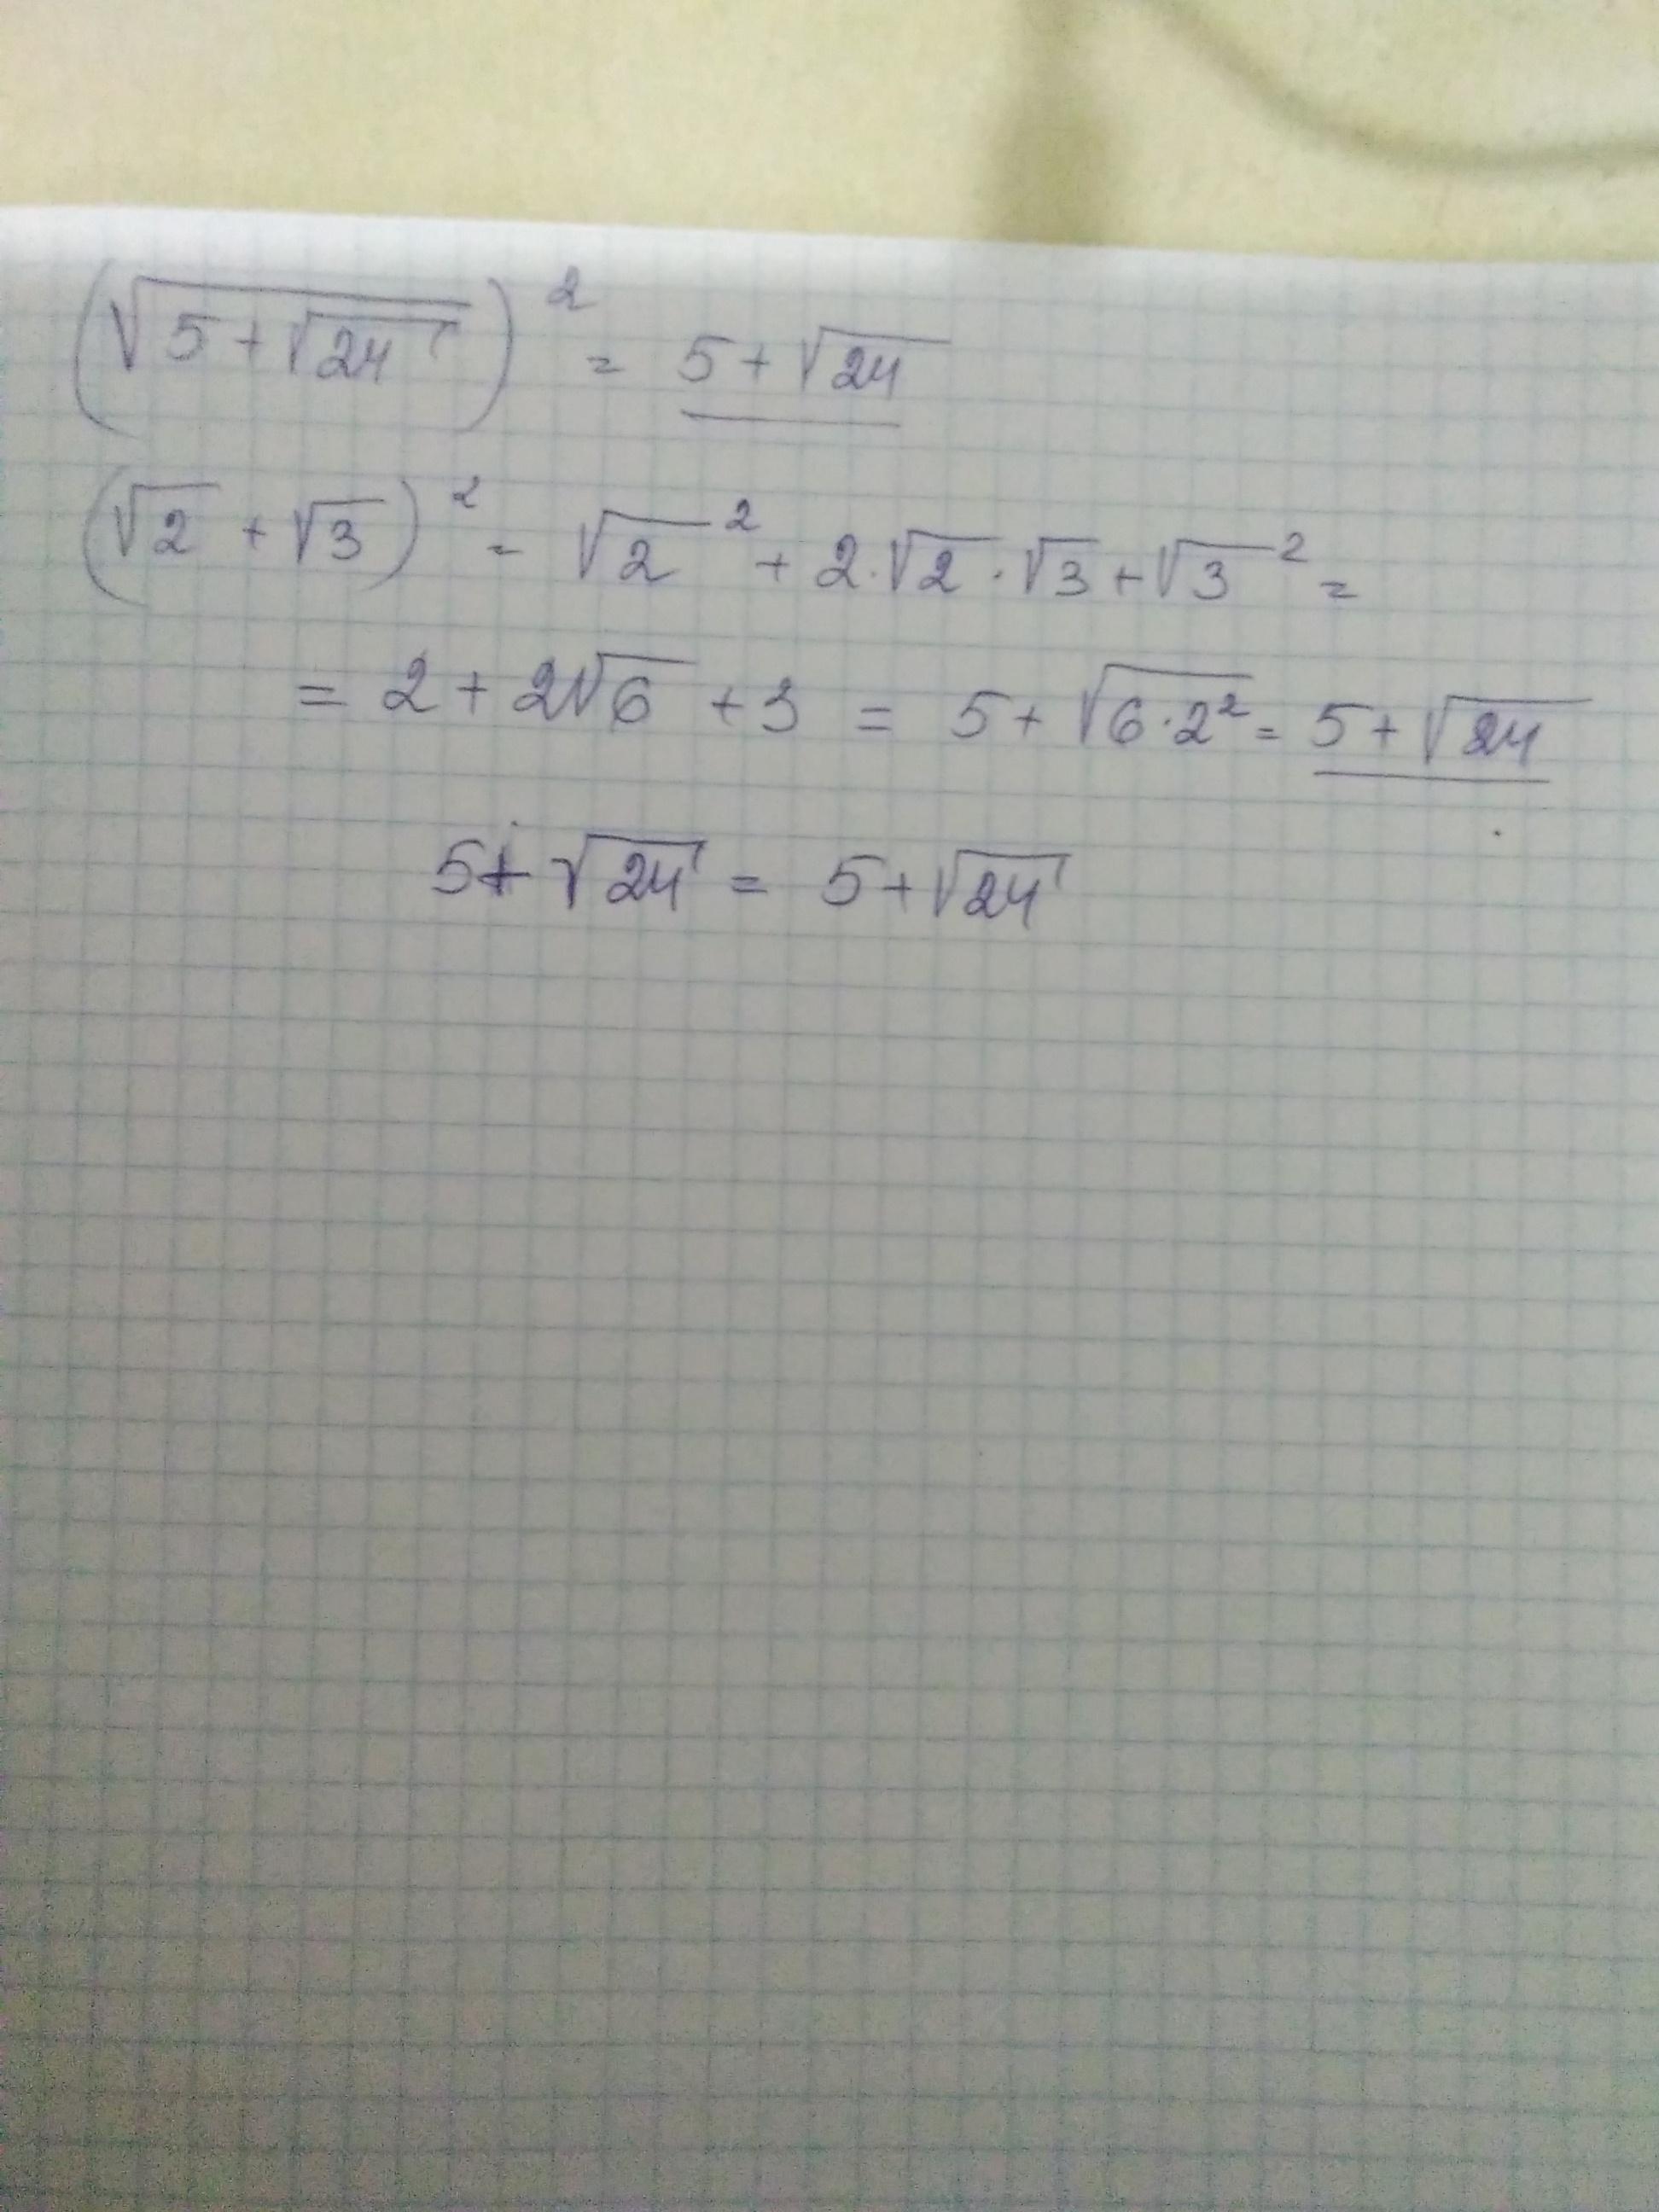 (√(5+√24))² = 5+√24
(√2 + √3)² = √2² + 2·√2·√3+√3² =
= 2+2√6 +3 = 5+√(6·2²) = 5+√24
5+√24 = 5+√24